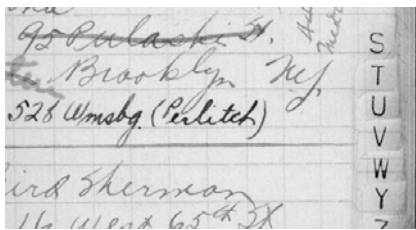 95 Pulaski St.
Brooklyn NY
528 Wmsbg. (Perlitch)
ird Sherman
West 65th St
S
T
U
V
W
Y
Z